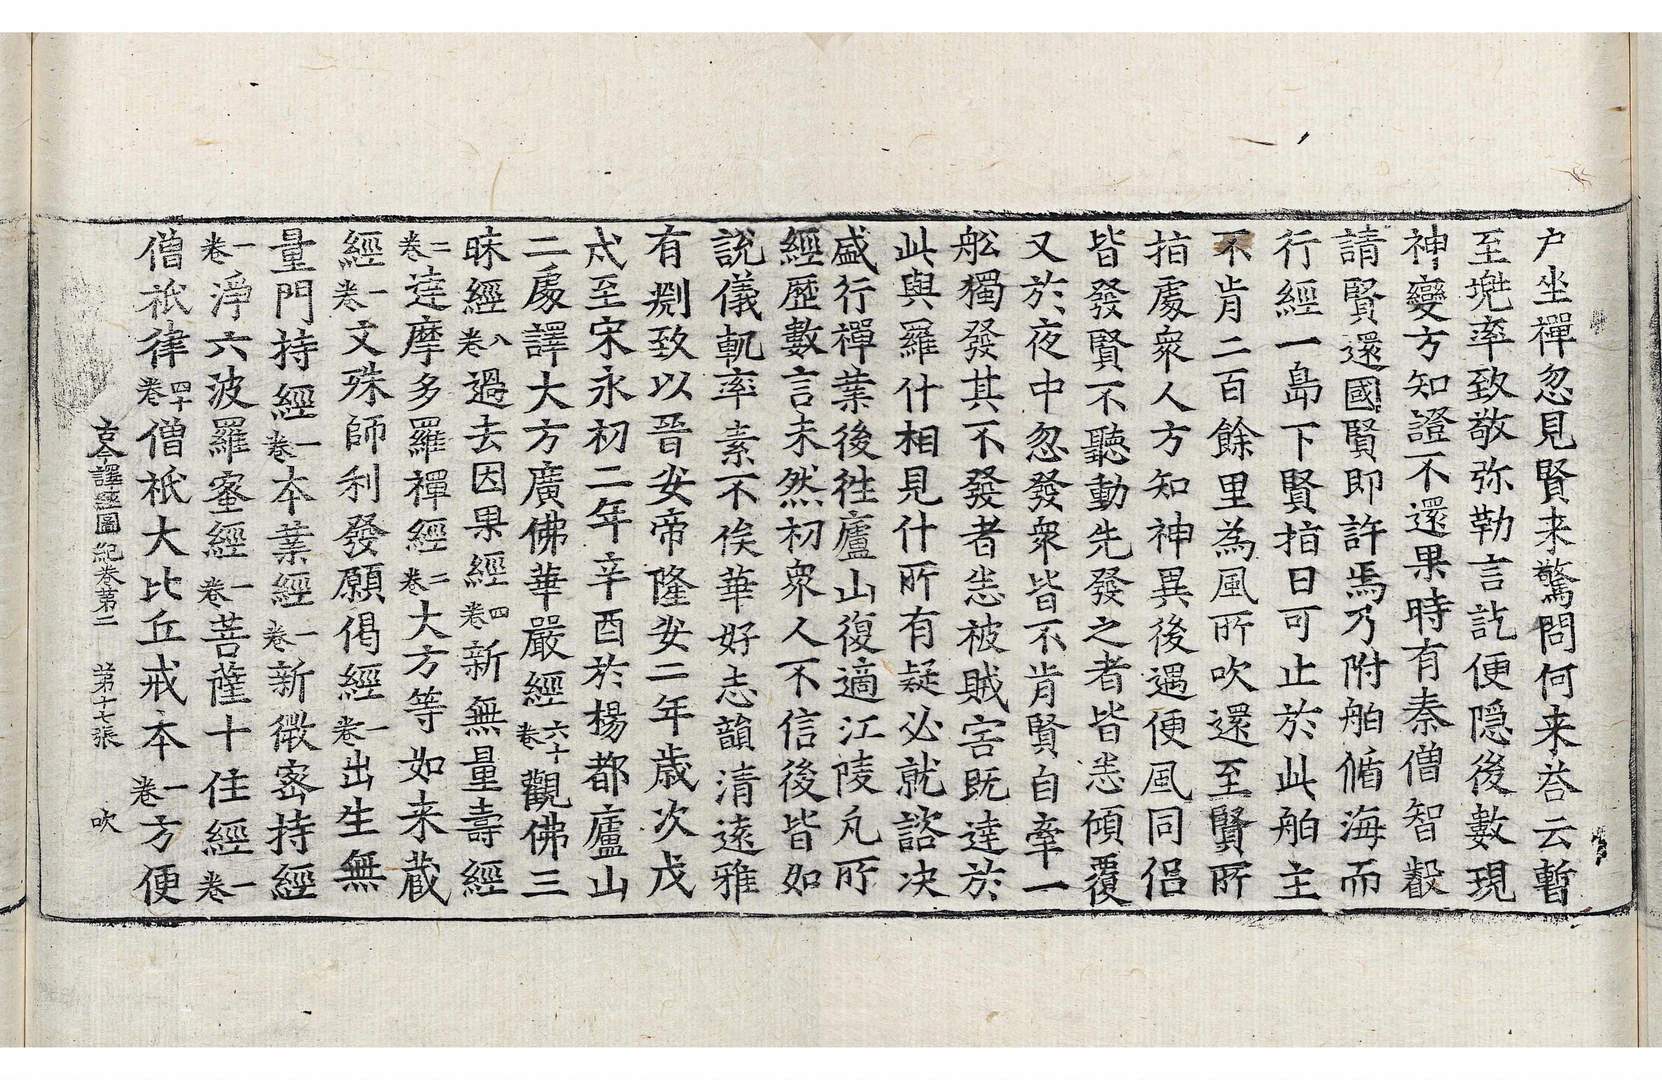 户坐禪忽見賢来驚問何来荅云暫
至兠率致敬弥勒言訖便隠後數現
神變方知證不還果時有秦僧智嚴
請賢還國賢即許焉乃附舶循海而
行經一㠀下賢指曰可止於此舶主
不肯二百餘里為風所吹還至賢所
指處衆人方知神異後遇便風同侣
皆發賢不聽動先發之者皆悉傾覆
又於夜中忽發衆皆不肯賢自牽一
舩獨發其不發者悉被賊害既達於
此與羅什相見什所有疑必就諮决
盛行禪業後徃廬山復適江陵凡所
經歷數言未然初衆人不信後皆如
說儀軌率素不俟華好志韻清遠雅
有淵致以晉安帝隆安二年歳次戊
戍至宋永初二年辛酉於楊都廬山
二處譯大方廣佛華嚴經六十卷觀佛三
昧經八卷過去因果經四卷新無量壽經
二卷達摩多羅禪經二卷大方等如来蔵
經一卷文殊師利發願偈經一卷出生無
量門持經一卷本業經一卷新微密持經
一卷淨六波羅蜜經一卷菩薩十住經一卷
僧祇律四十卷僧祇大比丘戒本一卷方便
古今譯經圖紀卷第二 第十七張 吹